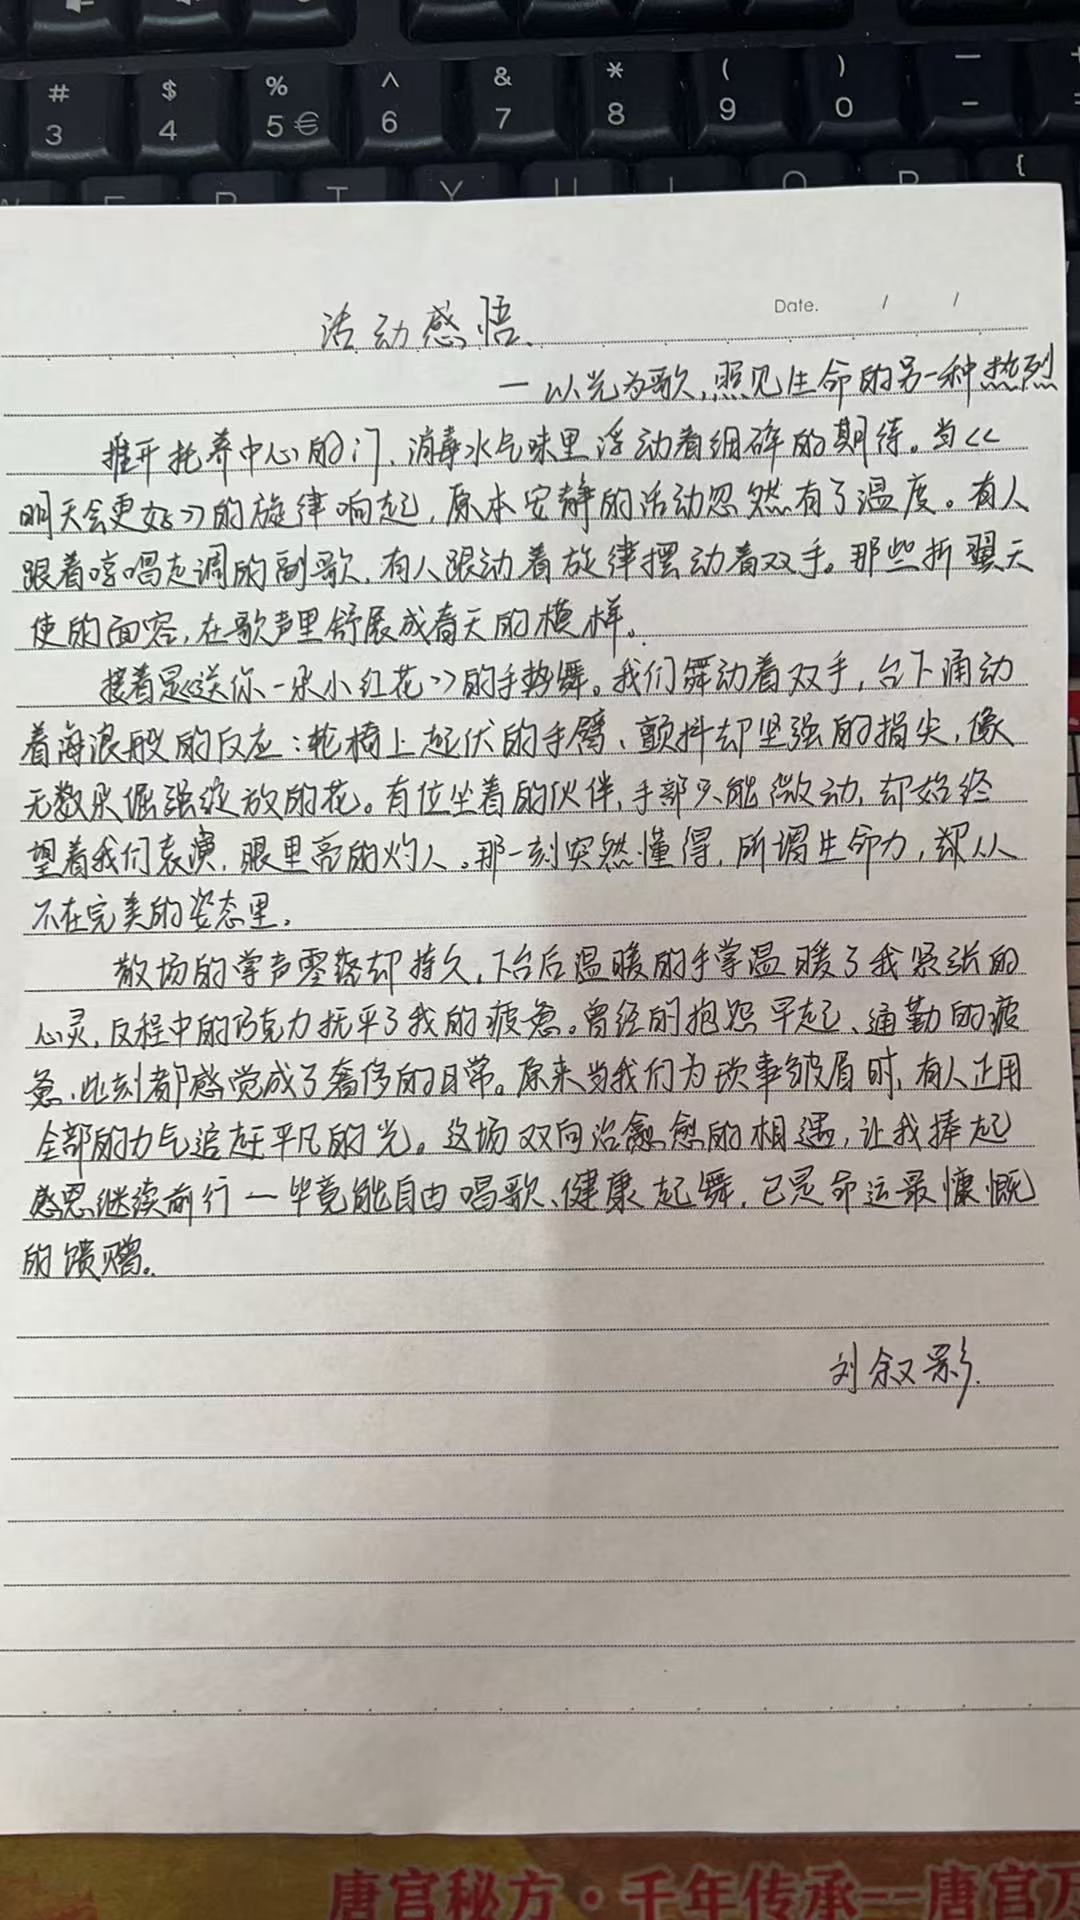 #
3
$
4
%
5 €
^
6
&
7
*
8
(
9
)
0
—
-
{
Date. / /
活动感悟.
一 以光为歌,照见生命的另一种热烈
推开托养中心的门、消毒水气味里浮动着细碎的期待。当<<
明天会更好>>的旋律响起,原本安静的活动忽然有了温度。有人
跟着哼唱走调的副歌,有人跟动着旋律摆动着双手。那些折翼天
使的面容,在歌声里舒展成春天的模样。
接着是《送你一朵小红花>>的手势舞。我们舞动着双手,台下涌动
着海浪般的反应:轮椅上起伏的手臂、颤抖却坚强的指尖,像
无数朵倔强绽放的花。有位坐着的伙伴,手部只能微动,却始终
望着我们表演,眼里亮的灼人。那一刻突然懂得,所谓生命力,从
不在完美的姿态里.
散场的掌声零落却持久,下台后温暖的手掌温暖了我紧张的
心灵,反程中的巧克力抚平了我的疲惫。曾经的抱怨早起、通勤的疲
惫,此刻都感觉成了奢侈的日常。原来当我们为琐事皱眉时,有人正用
全部的力气追赶平凡的光。这场双向治愈的相遇,让我捧起
感恩继续前行一毕竟能自由唱歌、健康起舞,已是命运最慷慨
的馈赠.
刘叙影.
唐宫秘方·千年传承--唐宫万